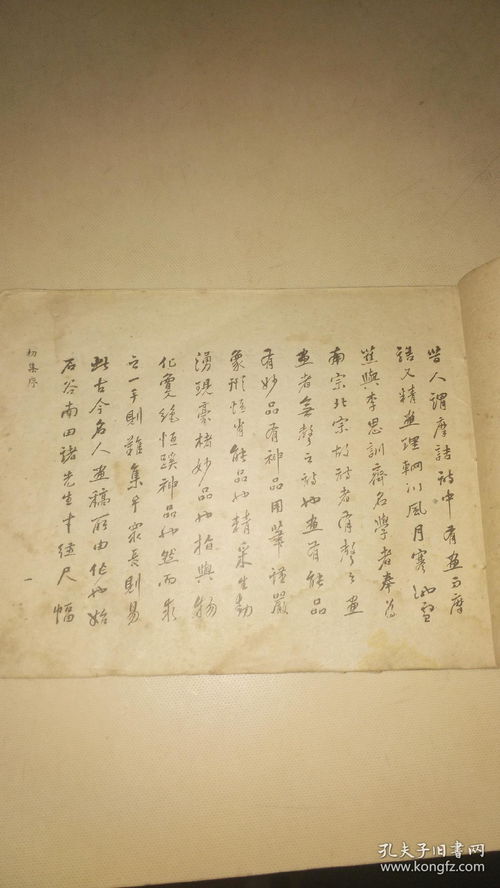 昔人謂摩詰詩中有畫而摩
詰又精畫理輞川風月寒雪
蕉與李思訓齊名學者奉為
南宗北宗故詩者有聲之畫
畫者無聲之詩也畫有能品
有妙品有神品用筆謹嚴
象形恆肖能品也精采生動
湧現豪楮妙品也指與物
化夐絕恒蹊神品也然而求
之一手則難集乎眾長則易
此古今名人畫稿所由作也始
石谷南田諸先生才徑尺幅
初集序
一
孔夫子旧书网
www.kongfz.com